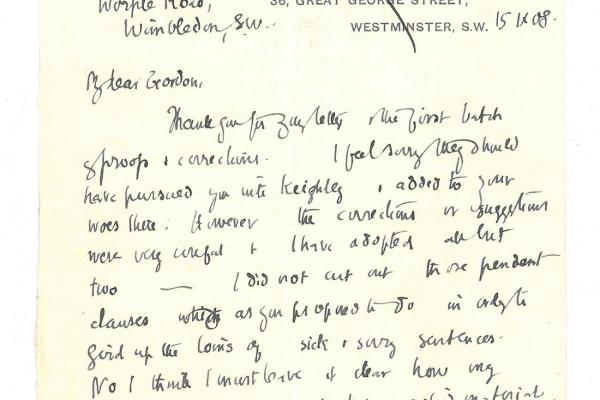 Worple Road,
36, GREAT GEORGE STREET,
Wimbledon, S.W.
WESTMINSTER, S.W. 15 IX 08.
My dear Gordon,
Thank you for your letter & the first batch
of proofs & corrections. I feel sorry they should
have pursued you into Keighley & added to your
woes there. However the corrections or suggestions
were very careful & I have adopted all but
two — I did not cut out those pendent
clauses which as you proposed to do in order to
gird up the loins of sick & sorry sentences.
No I think I must leave it clear how my
material